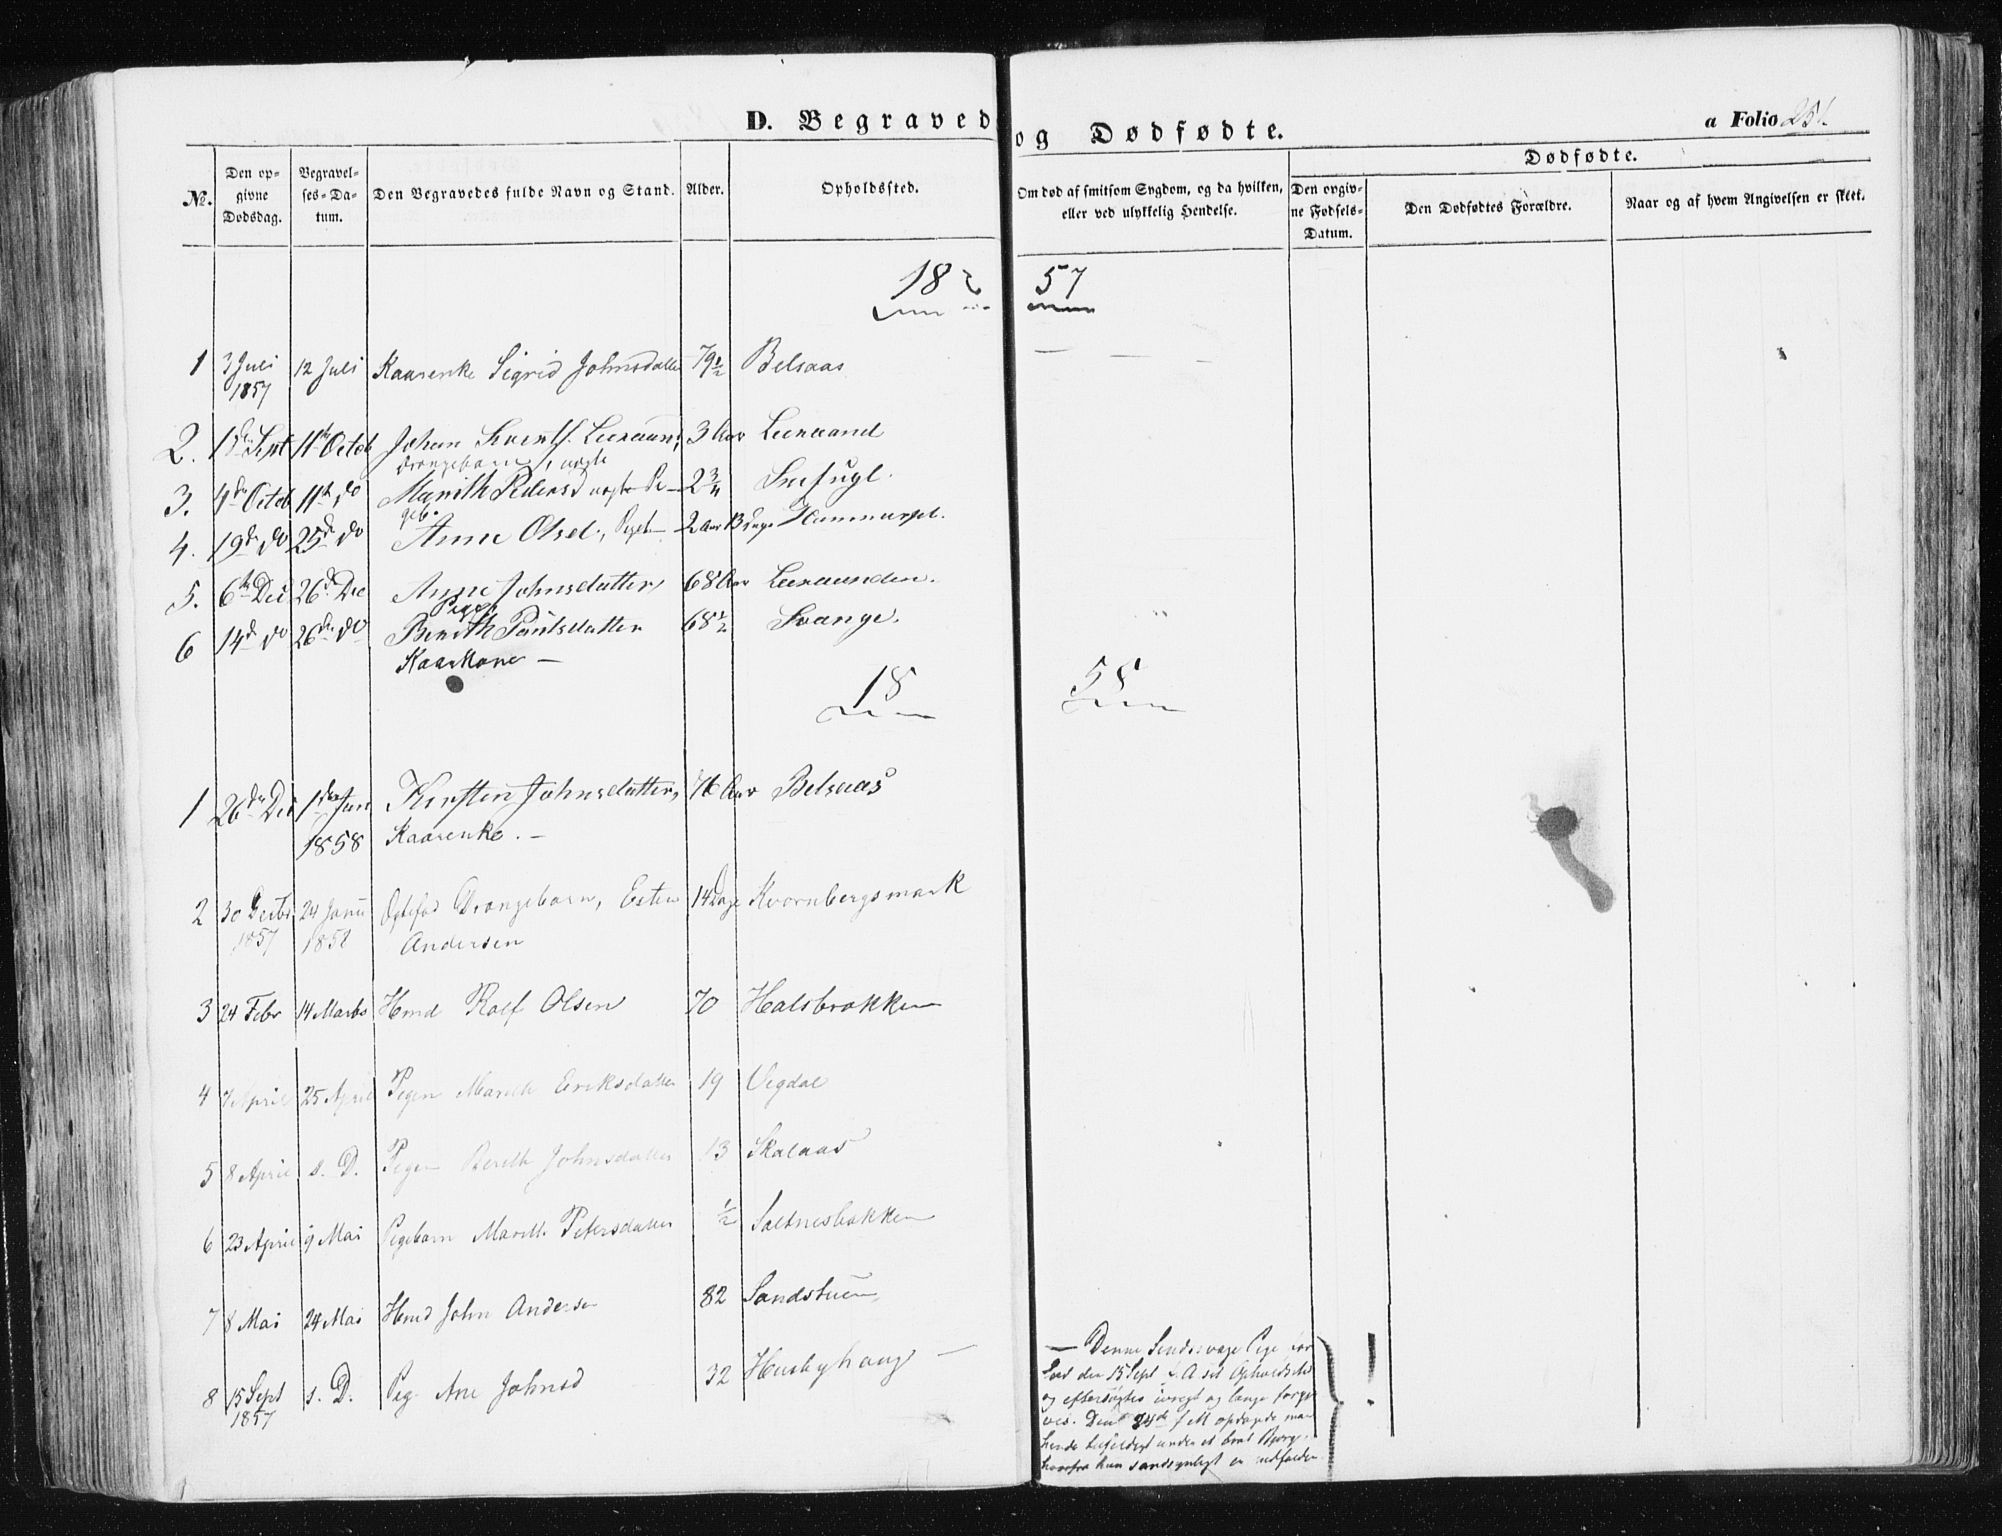 D. Begraved og Dødfødte.
a Folio 251
Dødfødte.
№. Den opgivne Dødsdag. Begravelses-Datum. Den Begravedes fulde Navn og Stand. Alder. Opholdssted. Om død af smitsom Sygdom, og da hvilken, eller ved ulykkelig Hendelse. Den opgivne Fødsels-Datum. Den Dødfødtes Forældre. Naar og af hvem Angivelsen er skeet.
18 57
1 3 Juli 1857 12 Juli Kaarenke Sigrid Johnsdatter 79½ Belsaas
2. Sept 11te Octob Johan 3 Aar Leeraand
Drengebarn, uægte
3. 4de Octob 11te do Marith Pedersd uægte 2¾ Smefugl.
4. 19de do 25de do Anne Olsd., 2 Aar 13 Dage Hammers
5. 6te Dec 26de Dec Anne Johnsdatter, 68 Aar Leeraanden.
Pige
6 14de do 26de do Berith Paulsdatter 68½ Svange.
Kaarkone —
18 58
1 26de Dec 1ste Jan 1858 Kirsten Johnsdatter, 76 Aar Belsaas
Kaarenke. —
2 30 Decbr 1857 24 Janu 1858 Drengebarn, Esten 14 Dage Kvornbergsmark
Andersen
3 24 Febr 14 Marts Hmd Rolf Olsen 70 Halsbrækken
4 7 April 25 April Pigen Marith Eriksdatter 19 Vegdal
5 8 April s. D. Pigen Berith Johnsdatter 13 Skalaas
6 23 April 9 Mai Pigebarn Marith Petersdatter ½ Saltnesbakken
7 8 Mai 24 Mai Hmd John Andersen 82 Sandstuen
8 15 Sept 1857 s. D. Pig Ane Johnsd 32 Husbyhaug —
— Denne Sindssvage Pige for
lod den 15 Sept f. A sit Opholdssted
og eftersøgtes ivrigt og længe forgje
ves. Den 24de f M opdagede man
hende tilfældigt under et brat Bjerg,
hvorfra hun sandsynligt er nedfalden